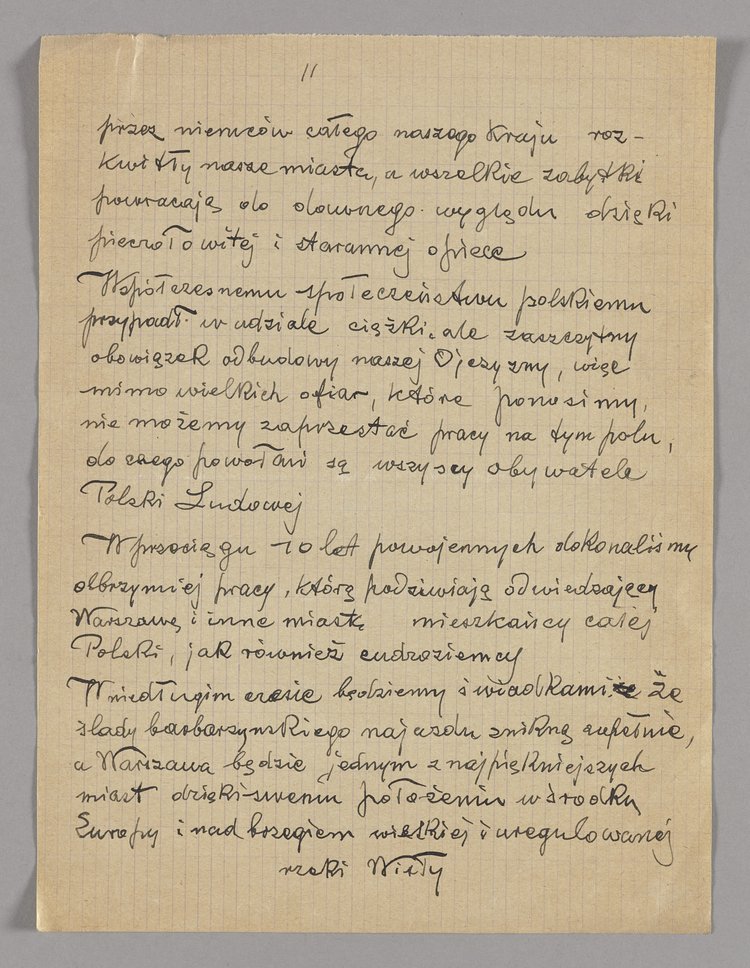 11
przez niemców całego naszego Kraju roz-
kwitły nasze miasta, a wszelkie zabytki
powracają do dawnego wyglądu dzięki
pieczołowitej i starannej opiece
Współczesnemu społeczeństwu polskiemu
przypadł w udziale ciężki, ale zaszczytny
obowiązek odbudowy naszej Ojczyzny, więc
mimo wielkich ofiar, które ponosimy,
nie możemy zaprzestać pracy na tym polu,
do czego powołani są wszyscy obywatele
Polski Ludowej
W przeciągu 10 lat powojennych dokonaliśmy
olbrzymiej pracy, którą podziwiają odwiedzający
Warszawę i inne miasta mieszkańcy całej
Polski, jak również cudzoziemcy
W niedługim czasie będziemy świadkami że
ślady barbarzynskiego najazdu znikną zupełnie,
a Warszawa będzie jednym z najpiękniejszych
miast dzięki swemu położeniu w środku
Europy i nad brzegiem wielkiej i uregulowanej
rzeki Wisły